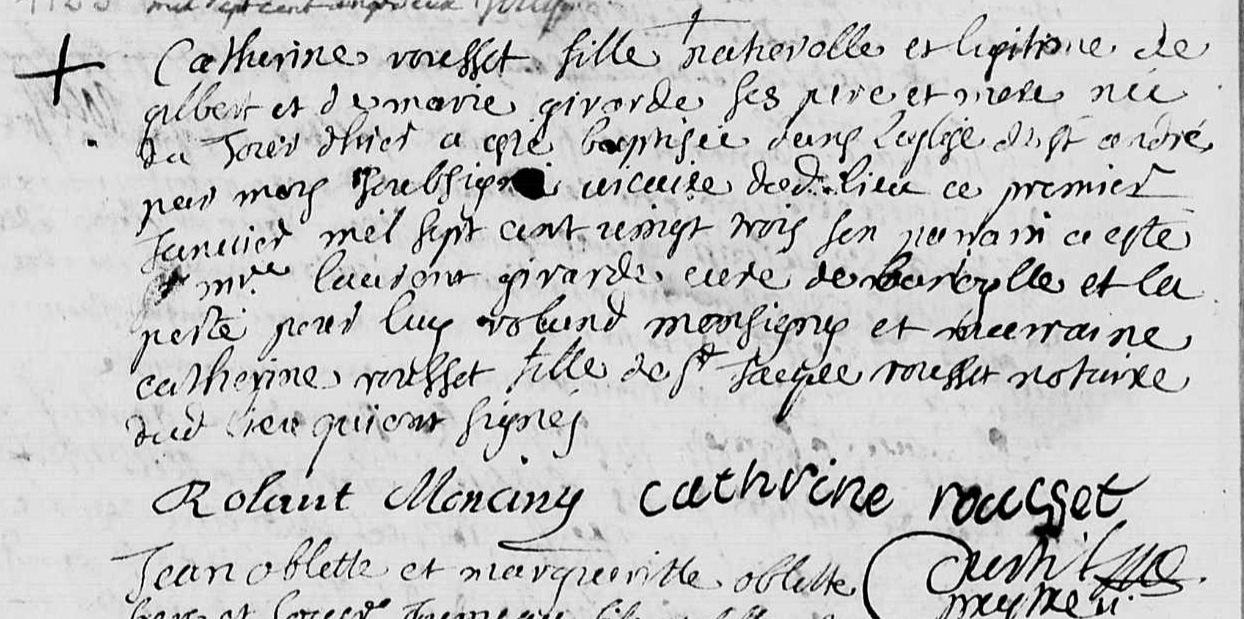 mil sept cent
Catherine rousset fille naturolle et legitime de
gilbert et de marie girarde ses pere et mere née
du Jour dhier a esté baptisée dans Leglise de st andré
par moy soubsigné vicaire dud. lieu ce premier
Januier mil sept cent vingt trois son parain a esté
mre laurent girarde curé de et la
porté pour luy roland monsigny et maraine
catherine rousset fille de sr Jacque rousset notaire
dud lieu qui ont signés
Rolant Monciny cathrine rousset
Jean oblette et margueritte oblette
et